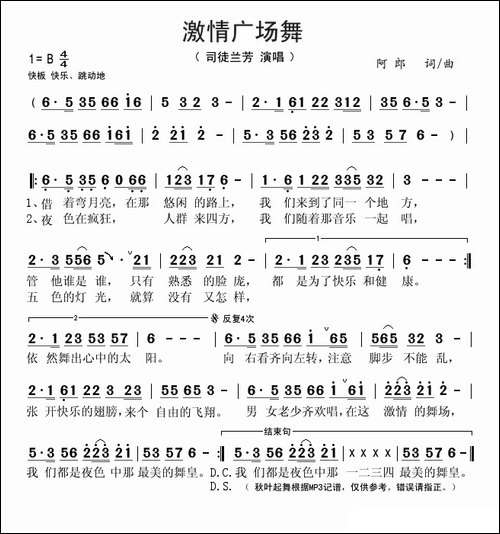 激情广场舞
（ 司徒兰芳 演唱 ）
1=B 4/4
阿 郎 词/曲
快板 快乐、跳动地
（ 6· 5 35 66 i6 | 5 32 3 - | 2· 1 61 22 312 | 35 6· 5 6 - |
6· 5 35 66 i6i | 2 2i 2 - | 5· 3 56 223 2 | 53 57 6 - ）|
‖: 6· 5 35 6 0 66 | 123 17 6 - | 6· 1 22 335 32 |
1、借 着弯月亮，在那 悠闲 的路上， 我 们来到了同一 个地 方，
2、夜 色在疯狂， 人群 来四方， 我 们随着那音乐 一起 唱，
2· 3 556 5 21 | 223 2 5 6 - | 2· 1 23 235 17 | 6 - - - :‖
管 他谁是 谁， 只有 熟悉 的脸 庞， 都 是为了快乐 和健 康。
五 色的灯 光， 就算 没有 又怎 样，
1
2
反复4次
2· 1 23 53 57 | 6 - - - | 6· 5 35 66 i 65 | 565 32 3 - |
依 然舞出心中的太 阳。 向 右看齐向左转，注意 脚步 不能 乱，
2· 1 61 22 3 23 | 55 65 3 - | 6· 5 35 66 i 6i | 223 2i 2 - |
张 开快乐的翅膀，来个 自由的飞翔。 男 女老少齐欢唱，在这 激情 的舞场，
结束句
5· 3 56 223 2i | 53 57 6 - :‖ 5· 3 56 223 2i | x x x x | 53 57 6 - ‖
我 们都是夜色 中那 最美的舞皇。 D.C. 我 们都是夜色 中那 一二三四 最美的舞皇。
D.S. （ 秋叶起舞根据MP3记谱，仅供参考，错误请指正。）